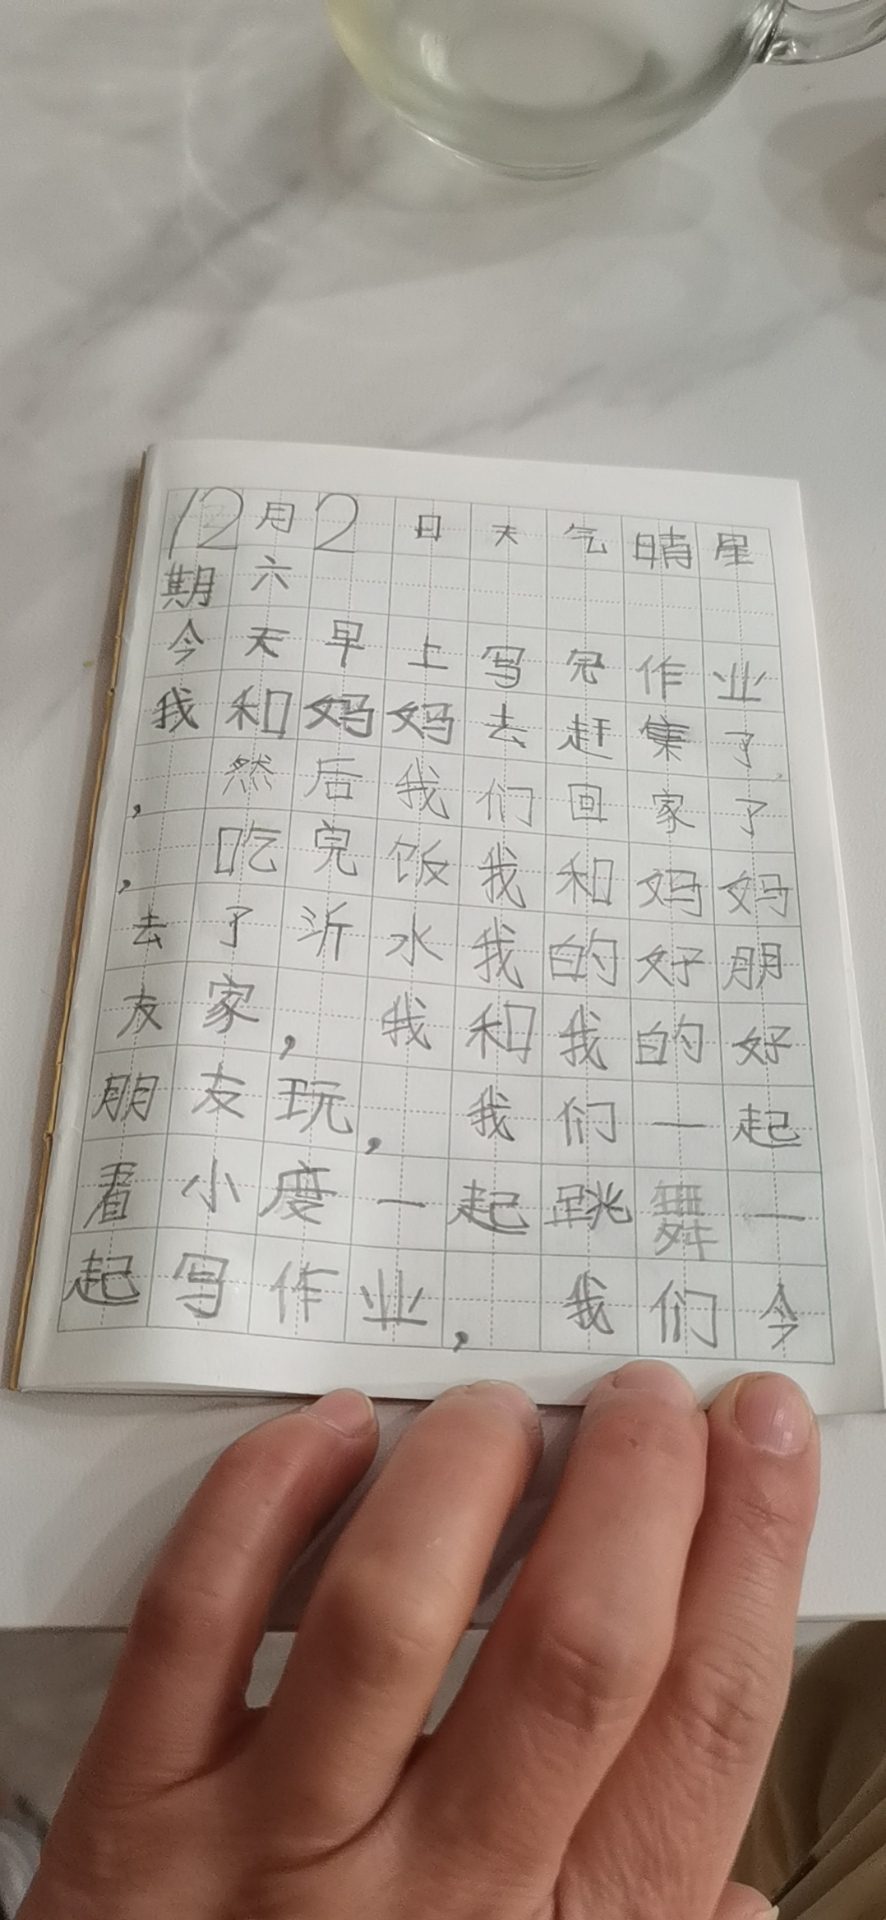 12月2日天气晴星
期六
今天早上写完作业
我和妈妈去赶集了
，然后我们回家了
，吃完饭我和妈妈
去了沂水我的好朋
友家，我和我的好
朋友玩，我们一起
看小度一起跳舞一
起写作业，我们今